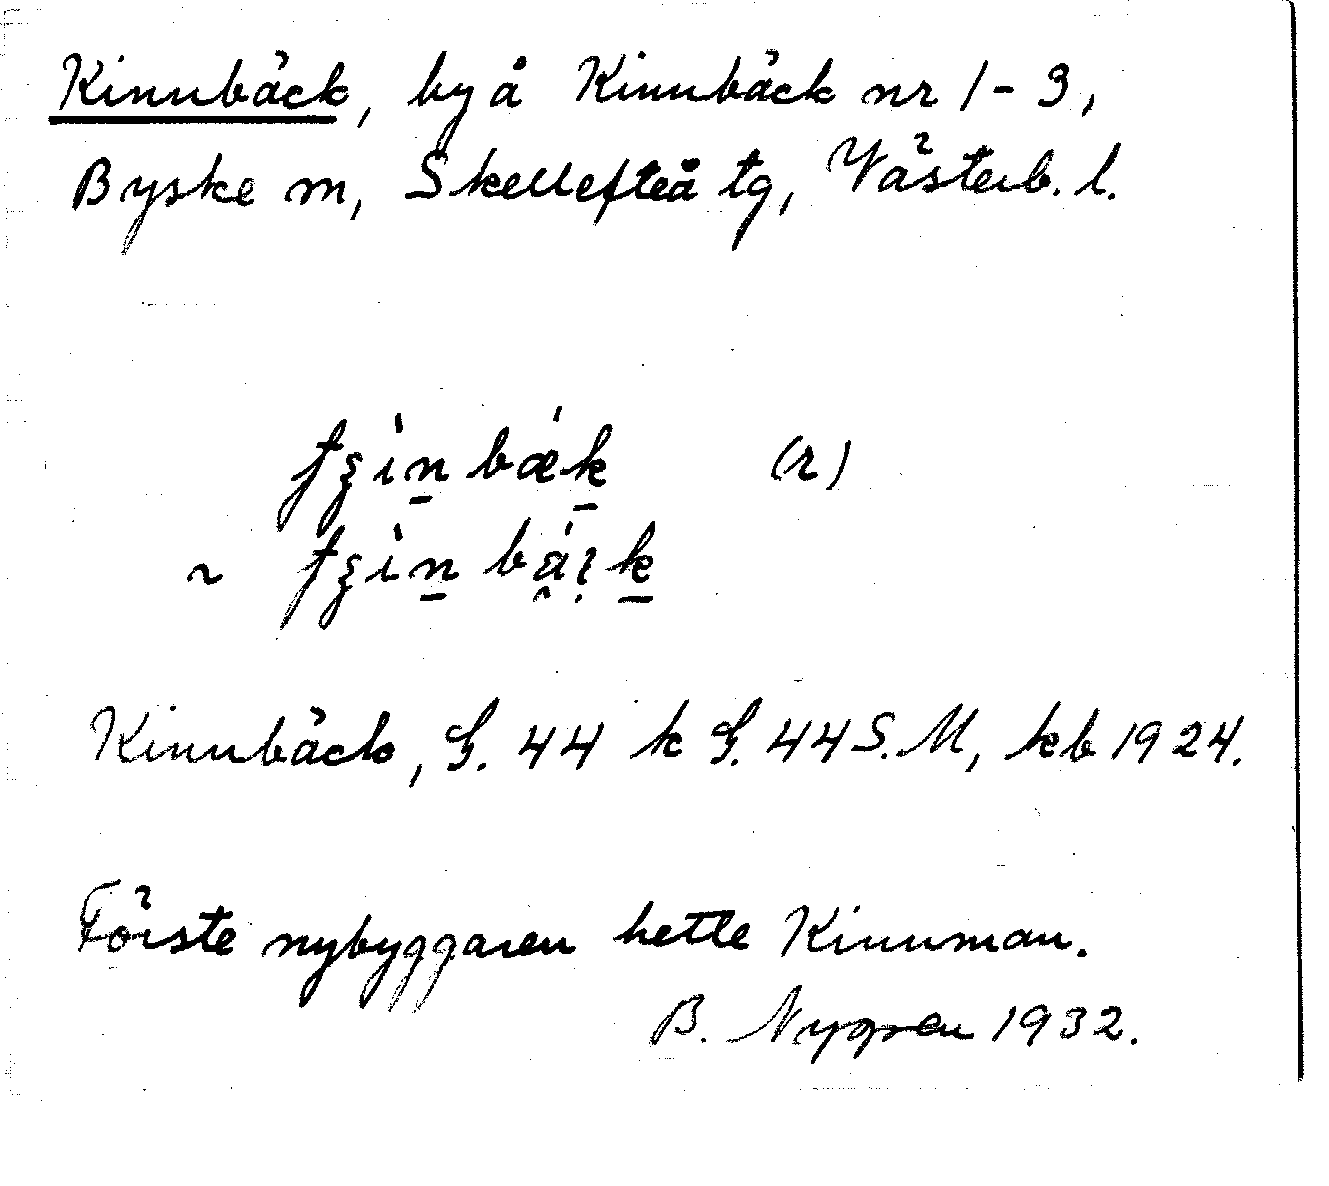 Kinnbäck, by å Kinnbäck nr 1-3,
Byske sn, Skellefteå tg, Västerb. l.
(r)
~
Kinnbäck, G. 44 k G. 44 S. M, kb 1924.
Förste nybyggaren hette Kinnman.
B. Nygren 1932.